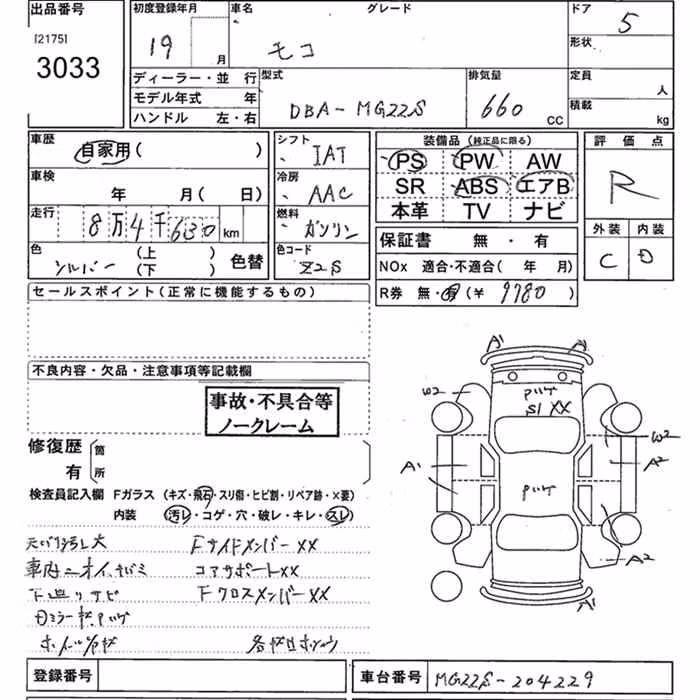 出品番号
[2175]
3033
初度登録年月
19 年 月
車名
モコ
グレード
ドア
5
形状
ディーラー・並 行
モデル年式 年
ハンドル 左・右
型式
DBA-MG22S
排気量
660 CC
定員 人
積載 kg
車歴
自家用( )
車検
年 月( 日)
走行
8万4千630 km
色
シルバー
(上 )
(下 )
色替
シフト
IAT
冷房
AAC
燃料
ガソリン
色コード
Z2S
装備品 (純正品に限る)
PS PW AW
SR ABS エアB
本革 TV ナビ
保証書 無・有
NOx 適合・不適合( 年 月)
R券 無・有(¥ 9780 )
評価点
R
外装 内装
C D
セールスポイント(正常に機能するもの)
不良内容・欠品・注意事項等記載欄
事故・不具合等
ノークレーム
修復歴
有
箇
所
検査員記入欄 Fガラス (キズ・飛石・スリ傷・ヒビ割・リペア跡・×要)
内装 (汚レ・コゲ・穴・破レ・キレ・スレ)
FサイドメンバーXX
コアサポートXX
下廻りサビ FクロスメンバーXX
A1 A1
W2
S1 XX
W2
A1 A2
A2
A1
登録番号
車台番号 MG22S-204229